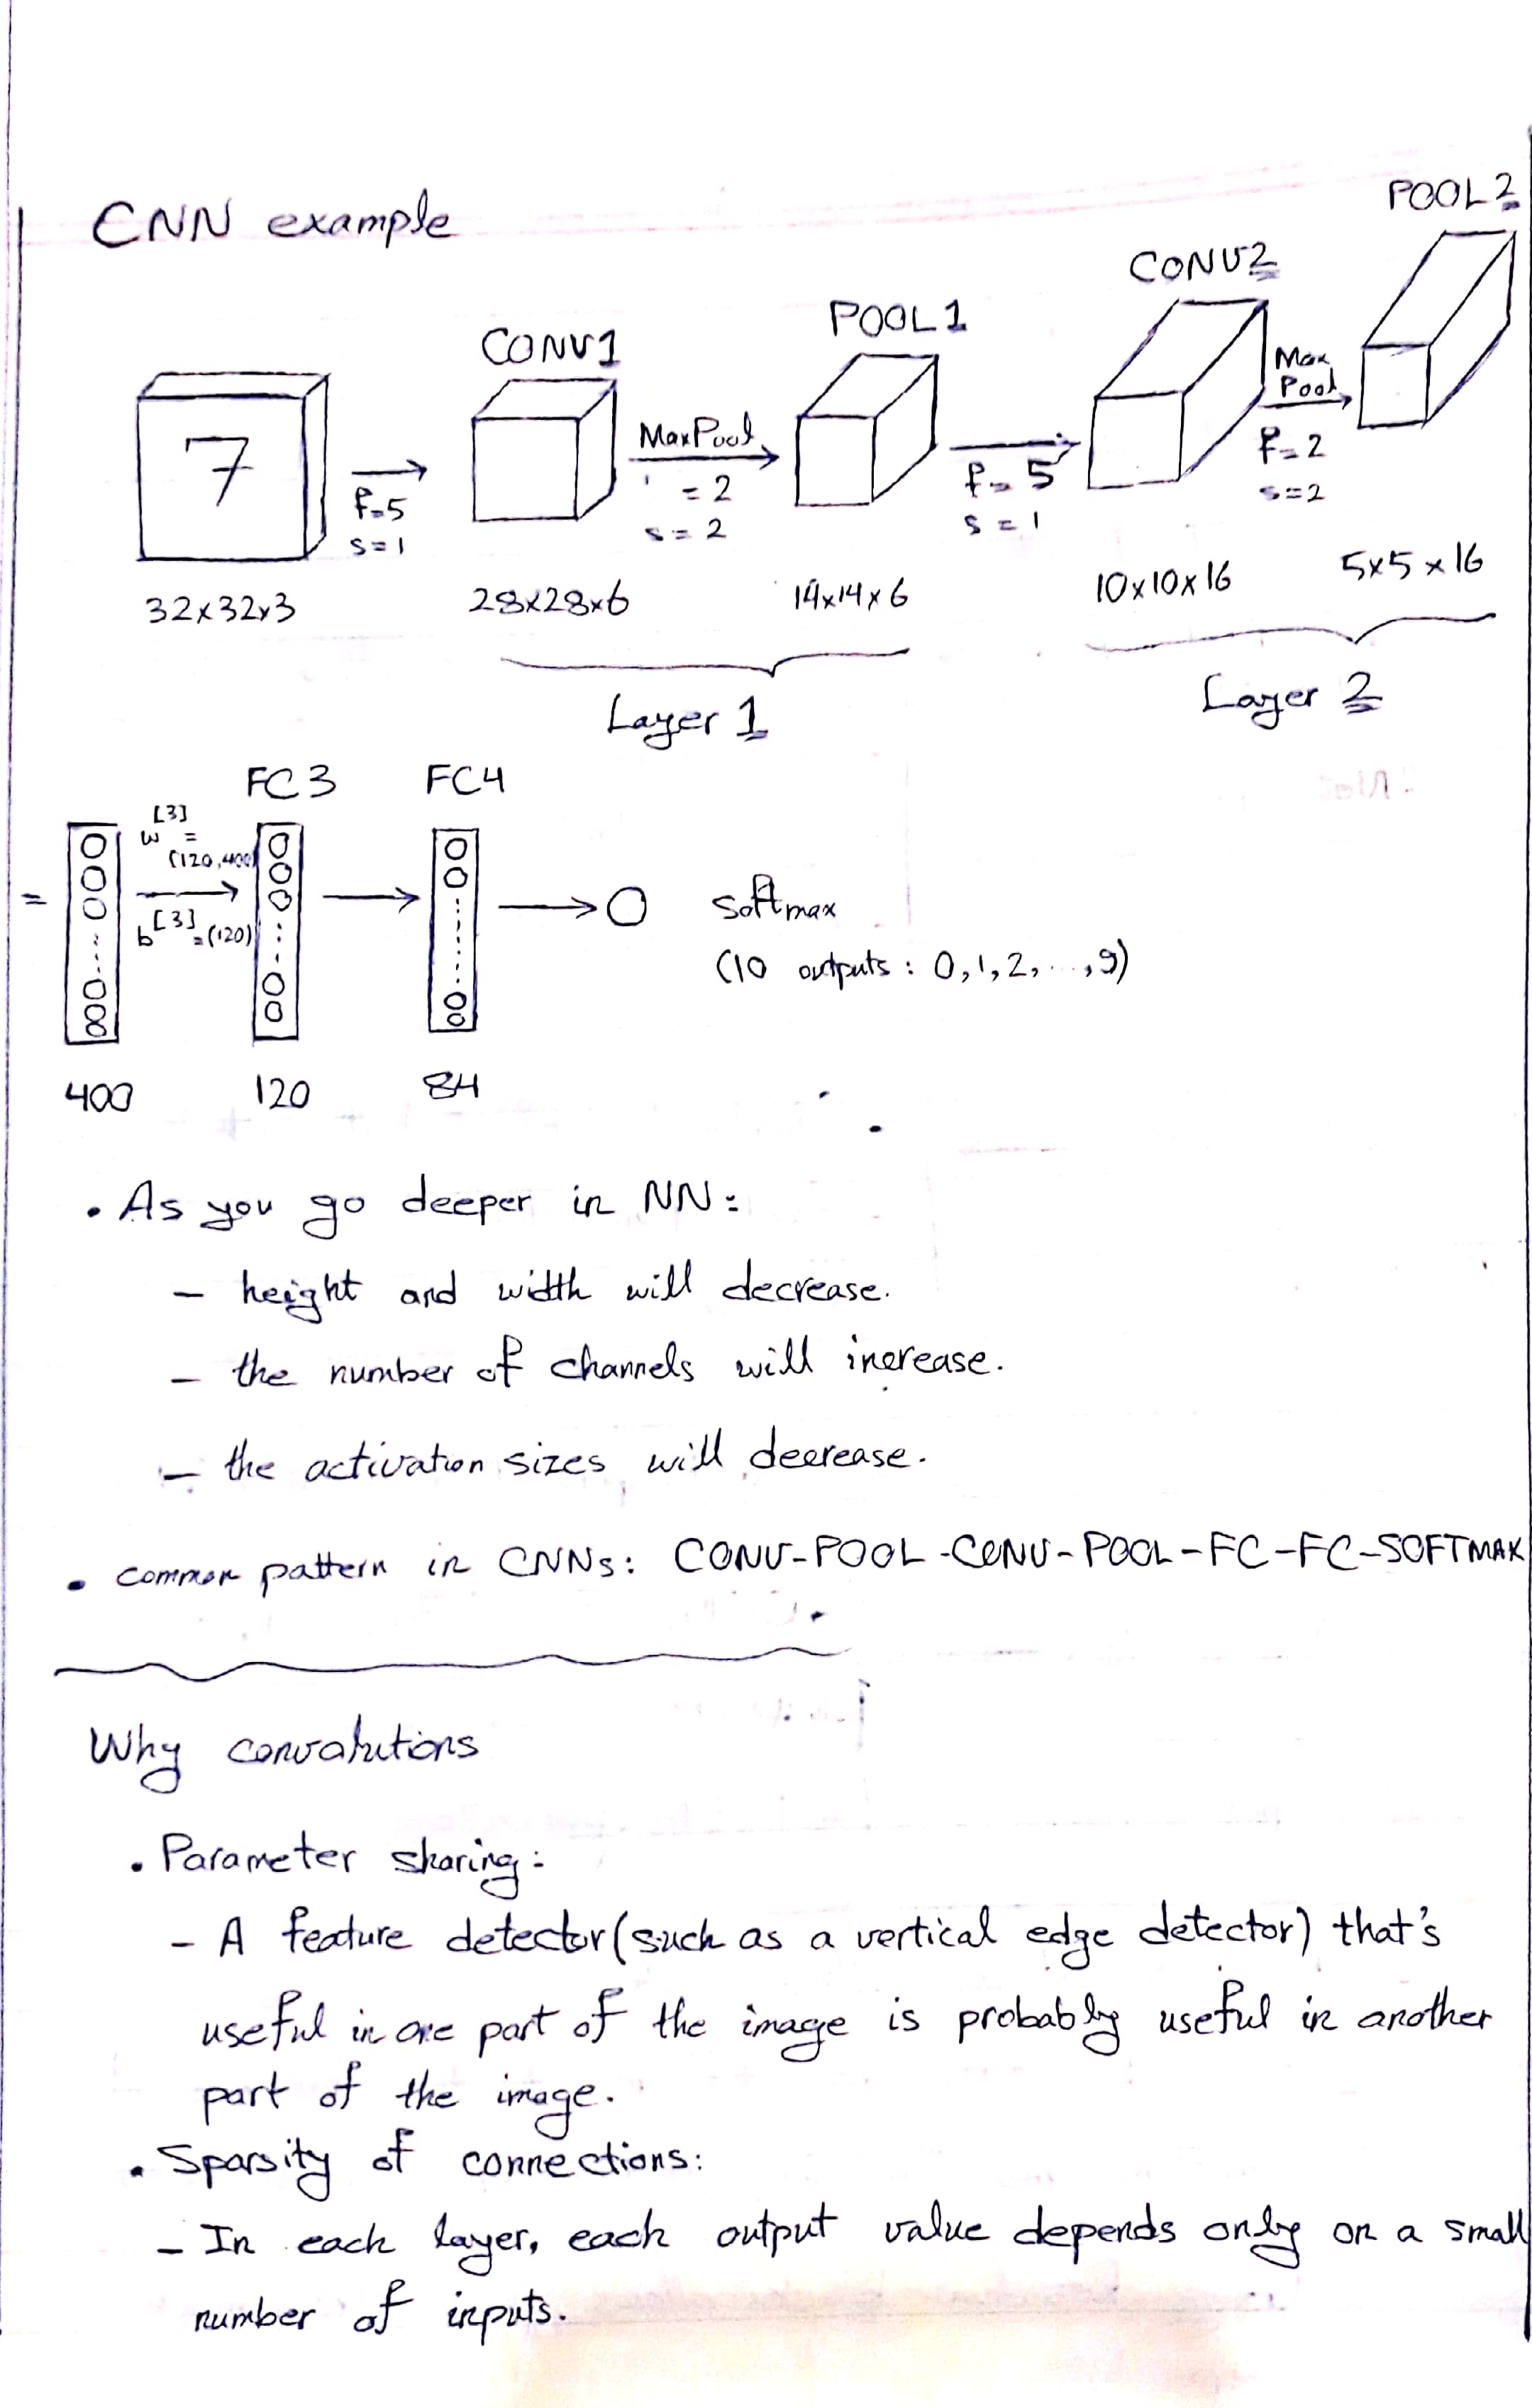 CNN example
POOL2
CONV2
POOL1
CONV1
7
f=5
s=1
MaxPool
= 2
s = 2
f = 5
s = 1
Max
Pool
f = 2
s = 2
32x32x3
28x28x6
14x14x6
10x10x16
5x5x16
Layer 1
Layer 2
FC3
FC4
w[3] =
(120,400)
b[3] = (120)
=
softmax
(10 outputs : 0,1,2, ...,9)
400
120
84
• As you go deeper in NN:
- height and width will decrease.
- the number of channels will increase.
- the activation sizes will decrease.
• common pattern in CNNs: CONV-POOL-CONV-POOL-FC-FC-SOFTMAX
Why convolutions
• Parameter sharing:
- A feature detector (such as a vertical edge detector) that's
useful in one part of the image is probably useful in another
part of the image.
• Sparsity of connections:
- In each layer, each output value depends only on a small
number of inputs.